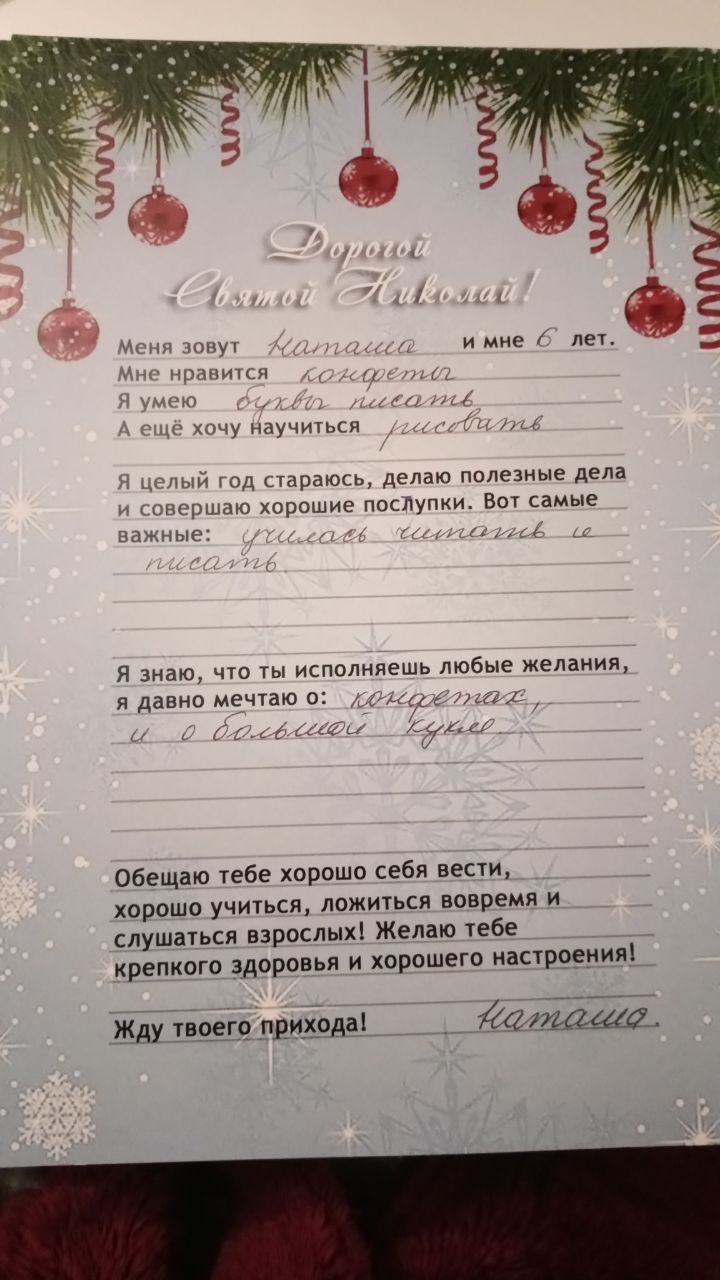 Дорогой
Святой Николай!
Меня зовут Наташа и мне 6 лет.
Мне нравится конфеты
Я умею буквы писать
А ещё хочу научиться рисовать
Я целый год стараюсь, делаю полезные дела
и совершаю хорошие послупки. Вот самые
важные: училась читать и
писать.
Я знаю, что ты исполняешь любые желания,
я давно мечтаю о: конфетах,
и о большой кукле.
Обещаю тебе хорошо себя вести,
хорошо учиться, ложиться вовремя и
слушаться взрослых! Желаю тебе
крепкого здоровья и хорошего настроения!
Жду твоего прихода! Наташа.